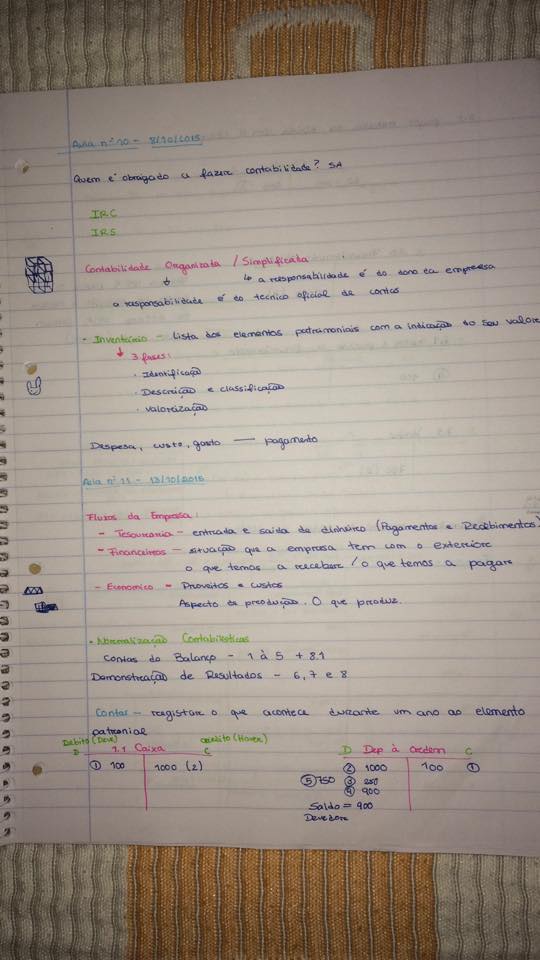 Aula nº 10 - 8/10/2015
Quem é obrigado a fazer contabilidade? SA
IRC
IRS
Contabilidade Organizada / Simplificada
↓ ↳ a responsabilidade é do dono da empresa
a responsabilidade é do tecnico oficial de contas
- Inventário - Lista dos elementos patrimoniais com a indicação do seu valor
↓ 3 fases:
· Identificação
· Descrição e classificação
· Valorização
Despesa, custo, gasto — pagamento
Aula nº 11 - 13/10/2015
Fluxos da Empresa:
- Tesouraria - entrada e saida de dinheiro (Pagamentos e Recebimentos)
- Financeiros - situação que a empresa tem com o exterior
o que temos a receber / o que temos a pagar
- Economico = Proveitos e custos
Aspecto da produção. O que produz.
• Normalização Contabilisticas
Contas do Balanço - 1 à 5 + 8.1
Demonstração de Resultados - 6, 7 e 8
Contas - registar o que acontece durante um ano ao elemento
patronial
Débito (Deve) credito (Haver)
D 1.1 Caixa C D Dep à ordem C
① 100 1000 (2) ② 1000 100 ①
⑤ 750 ③ 250
④ 900
Saldo = 900
Devedor